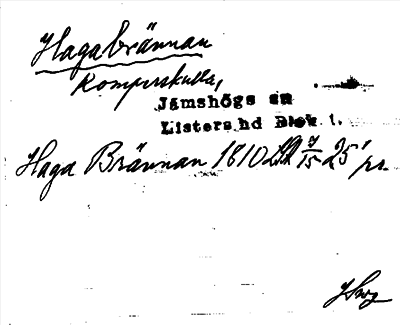 Hagabrännan
Komperskulla,
Jämshögs sn
Listers hd Blek 1.
Haga Brännan 1810 LM 7/15 25' pr.